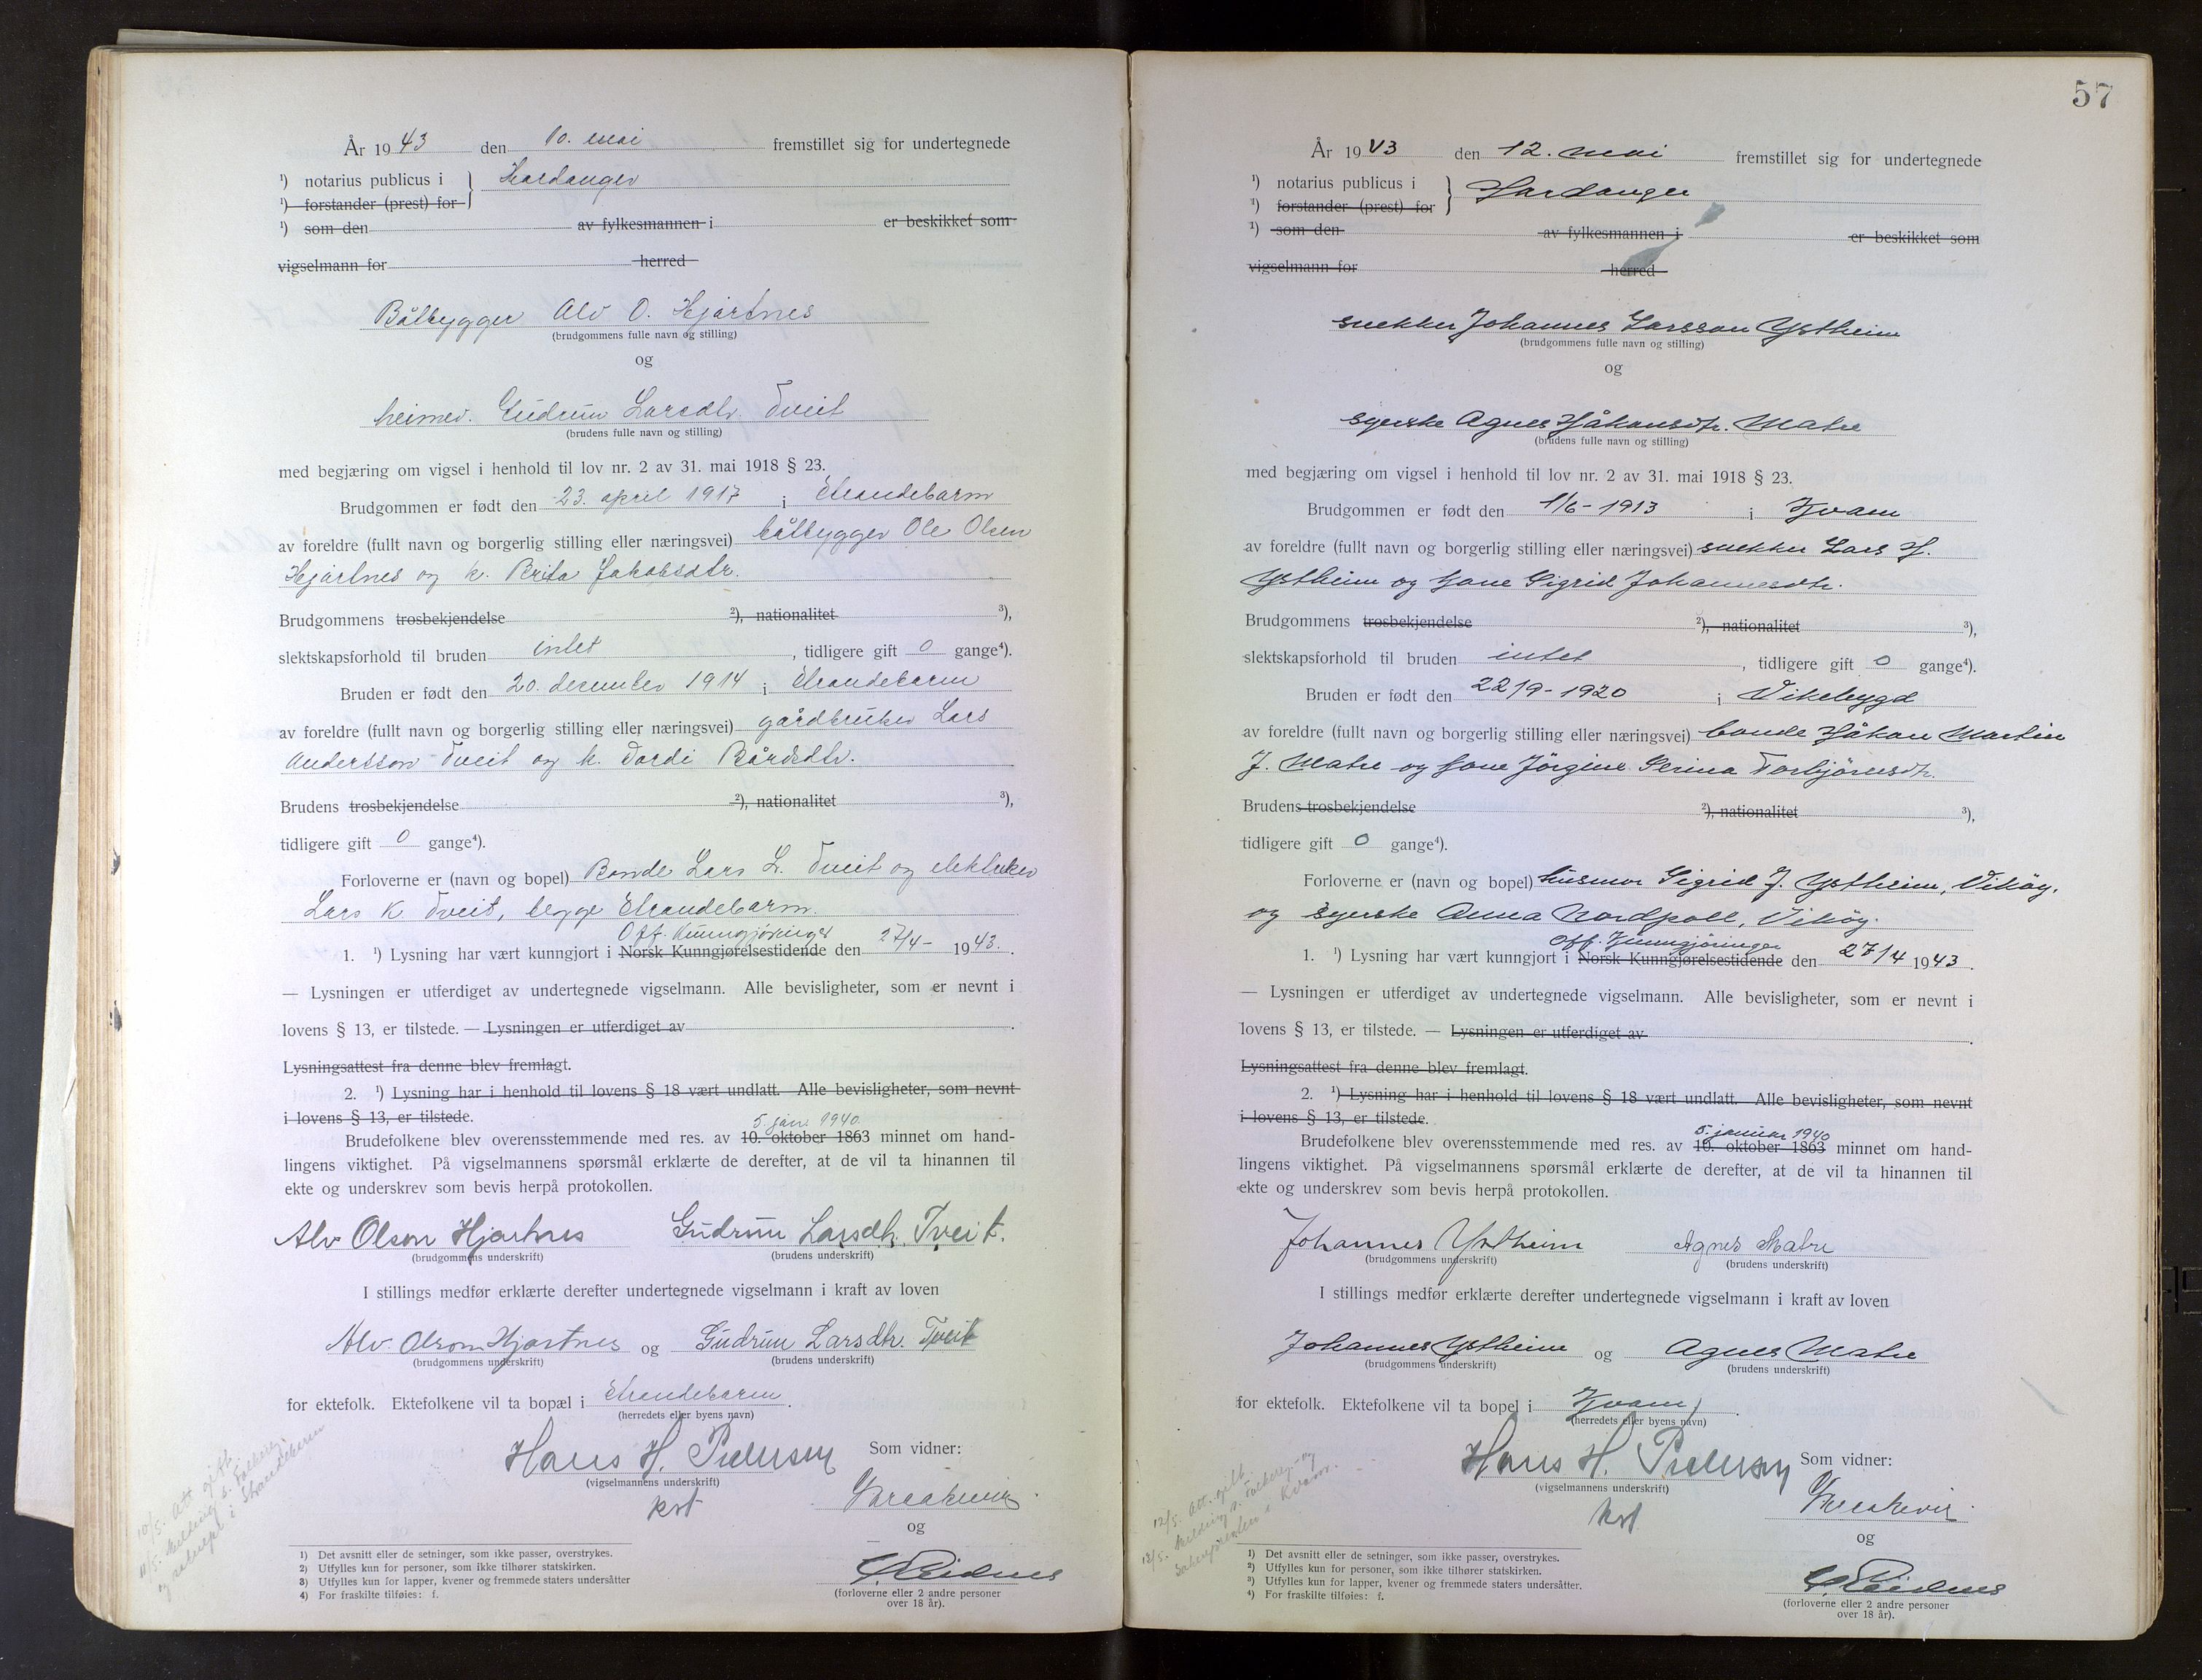 År 1943 den 10. mai fremstillet sig for undertegnede
¹) notarius publicus i } Hardanger
¹) forstander (prest) for
¹) som den av fylkesmannen i er beskikket som
vigselmann for herred
Båtbygger Alv O. Hjartnes
(brudgommens fulle navn og stilling)
og
heimev. Gudrun Larsdtr. Tveit
(brudens fulle navn og stilling)
med begjæring om vigsel i henhold til lov nr. 2 av 31. mai 1918 § 23.
Brudgommen er født den 23. april 1917 i Strandebarm
av foreldre (fullt navn og borgerlig stilling eller næringsvei) båtbygger Ole Olsen
Hjartnes og h. Brita Jakobsdtr.
Brudgommens trosbekjendelse ²), nationalitet ³),
slektskapsforhold til bruden intet , tidligere gift 0 gange⁴).
Bruden er født den 20. desember 1914 i Strandebarm
av foreldre (fullt navn og borgerlig stilling eller næringsvei) gårdbruker Lars
Andersson Tveit og h. Dordi Bårdsdtr.
Brudens trosbekjendelse ²), nationalitet ³),
tidligere gift 0 gange⁴).
Forloverne er (navn og bopel) Bonde Lars L. Tveit og
Lars K Tveit, begge Strandebarm.
Off. Kunngjøringer
1. ¹) Lysning har vært kunngjort i Norsk Kunngjørelsestidende den 27/4 - 1943.
— Lysningen er utferdiget av undertegnede vigselmann. Alle bevisligheter, som er nevnt i
lovens § 13, er tilstede. — Lysningen er utferdiget av .
Lysningsattest fra denne blev fremlagt.
2. ¹) Lysning har i henhold til lovens § 18 vært undlatt. Alle bevisligheter, som nevnt
i lovens § 13, er tilstede.
5. jan. 1940
Brudefolkene blev overensstemmende med res. av 10. oktober 1863 minnet om hand-
lingens viktighet. På vigselmannens spørsmål erklærte de derefter, at de vil ta hinannen til
ekte og underskrev som bevis herpå protokollen.
Alv Olson Hjartnes Gudrun Larsdtr. Tveit.
(brudgommens underskrift) (brudens underskrift)
I stillings medfør erklærte derefter undertegnede vigselmann i kraft av loven
Alv. Olson Hjartnes og Gudrun Larsdtr. Tveit
(brudgommens underskrift) (brudens underskrift)
for ektefolk. Ektefolkene vil ta bopæl i Strandebarm.
(herredets eller byens navn)
Hans H. Pedersen Som vidner:
(vigselmannens underskrift)
kst
og
10/5. Att. gitt.
11/5. Melding s. Folkereg.
og sakregl i Strandebarm
(forloverne eller 2 andre personer
over 18 år).
1) Det avsnitt eller de setninger, som ikke passer, overstrykes.
2) Utfylles kun for personer, som ikke tilhører statskirken.
3) Utfylles kun for lapper, kvener og fremmede staters undersåtter
4) For fraskilte tilføies: f.
57
År 1943 den 12. mai fremstillet sig for undertegnede
¹) notarius publicus i } Hardanger
¹) forstander (prest) for
¹) som den av fylkesmannen i er beskikket som
vigselmann for herred
snekker Johannes Larsson Ystheim
(brudgommens fulle navn og stilling)
og
syerske Agnes Håkonsdtr. Matre
(brudens fulle navn og stilling)
med begjæring om vigsel i henhold til lov nr. 2 av 31. mai 1918 § 23.
Brudgommen er født den 1/6 - 1913 i Kvam
av foreldre (fullt navn og borgerlig stilling eller næringsvei) snekker Lars H.
Ystheim og kone Sigrid Johannesdtr.
Brudgommens trosbekjendelse ²), nationalitet ³),
slektskapsforhold til bruden intet , tidligere gift 0 gange⁴).
Bruden er født den 22/9 - 1920 i Vikebygd
av foreldre (fullt navn og borgerlig stilling eller næringsvei) bonde Håkon Martin
J. Matre og kone Jörgine Serina Torbjörnsdtr.
Brudens trosbekjendelse ²), nationalitet ³),
tidligere gift 0 gange⁴).
Forloverne er (navn og bopel) husmor Sigrid J. Ystheim, Viköy,
og syerske Anna Nordpoll, Viköy.
Off. Kunngjöringer
1. ¹) Lysning har vært kunngjort i Norsk Kunngjørelsestidende den 27/4 1943.
— Lysningen er utferdiget av undertegnede vigselmann. Alle bevisligheter, som er nevnt i
lovens § 13, er tilstede. — Lysningen er utferdiget av .
Lysningsattest fra denne blev fremlagt.
2. ¹) Lysning har i henhold til lovens § 18 vært undlatt. Alle bevisligheter, som nevnt
i lovens § 13, er tilstede.
5. januar 1940
Brudefolkene blev overensstemmende med res. av 10. oktober 1863 minnet om hand-
lingens viktighet. På vigselmannens spørsmål erklærte de derefter, at de vil ta hinannen til
ekte og underskrev som bevis herpå protokollen.
Johannes Ystheim Agnes Matre
(brudgommens underskrift) (brudens underskrift)
I stillings medfør erklærte derefter undertegnede vigselmann i kraft av loven
Johannes Ystheim og Agnes Matre
(brudgommens underskrift) (brudens underskrift)
for ektefolk. Ektefolkene vil ta bopel i Kvam .
(herredets eller byens navn)
Hans H. Pedersen Som vidner:
(vigselmannens underskrift)
kst
og
12/5. Att. gitt.
13/5. Melding s. Folkereg. og
i Kvam.
(forloverne eller 2 andre personer
over 18 år).
¹) Det avsnitt eller de setninger, som ikke passer, overstrykes.
²) Utfylles kun for personer, som ikke tilhører statskirken.
³) Utfylles kun for lapper, kvener og fremmede staters undersåtter.
⁴) For fraskilte tilføies: f.